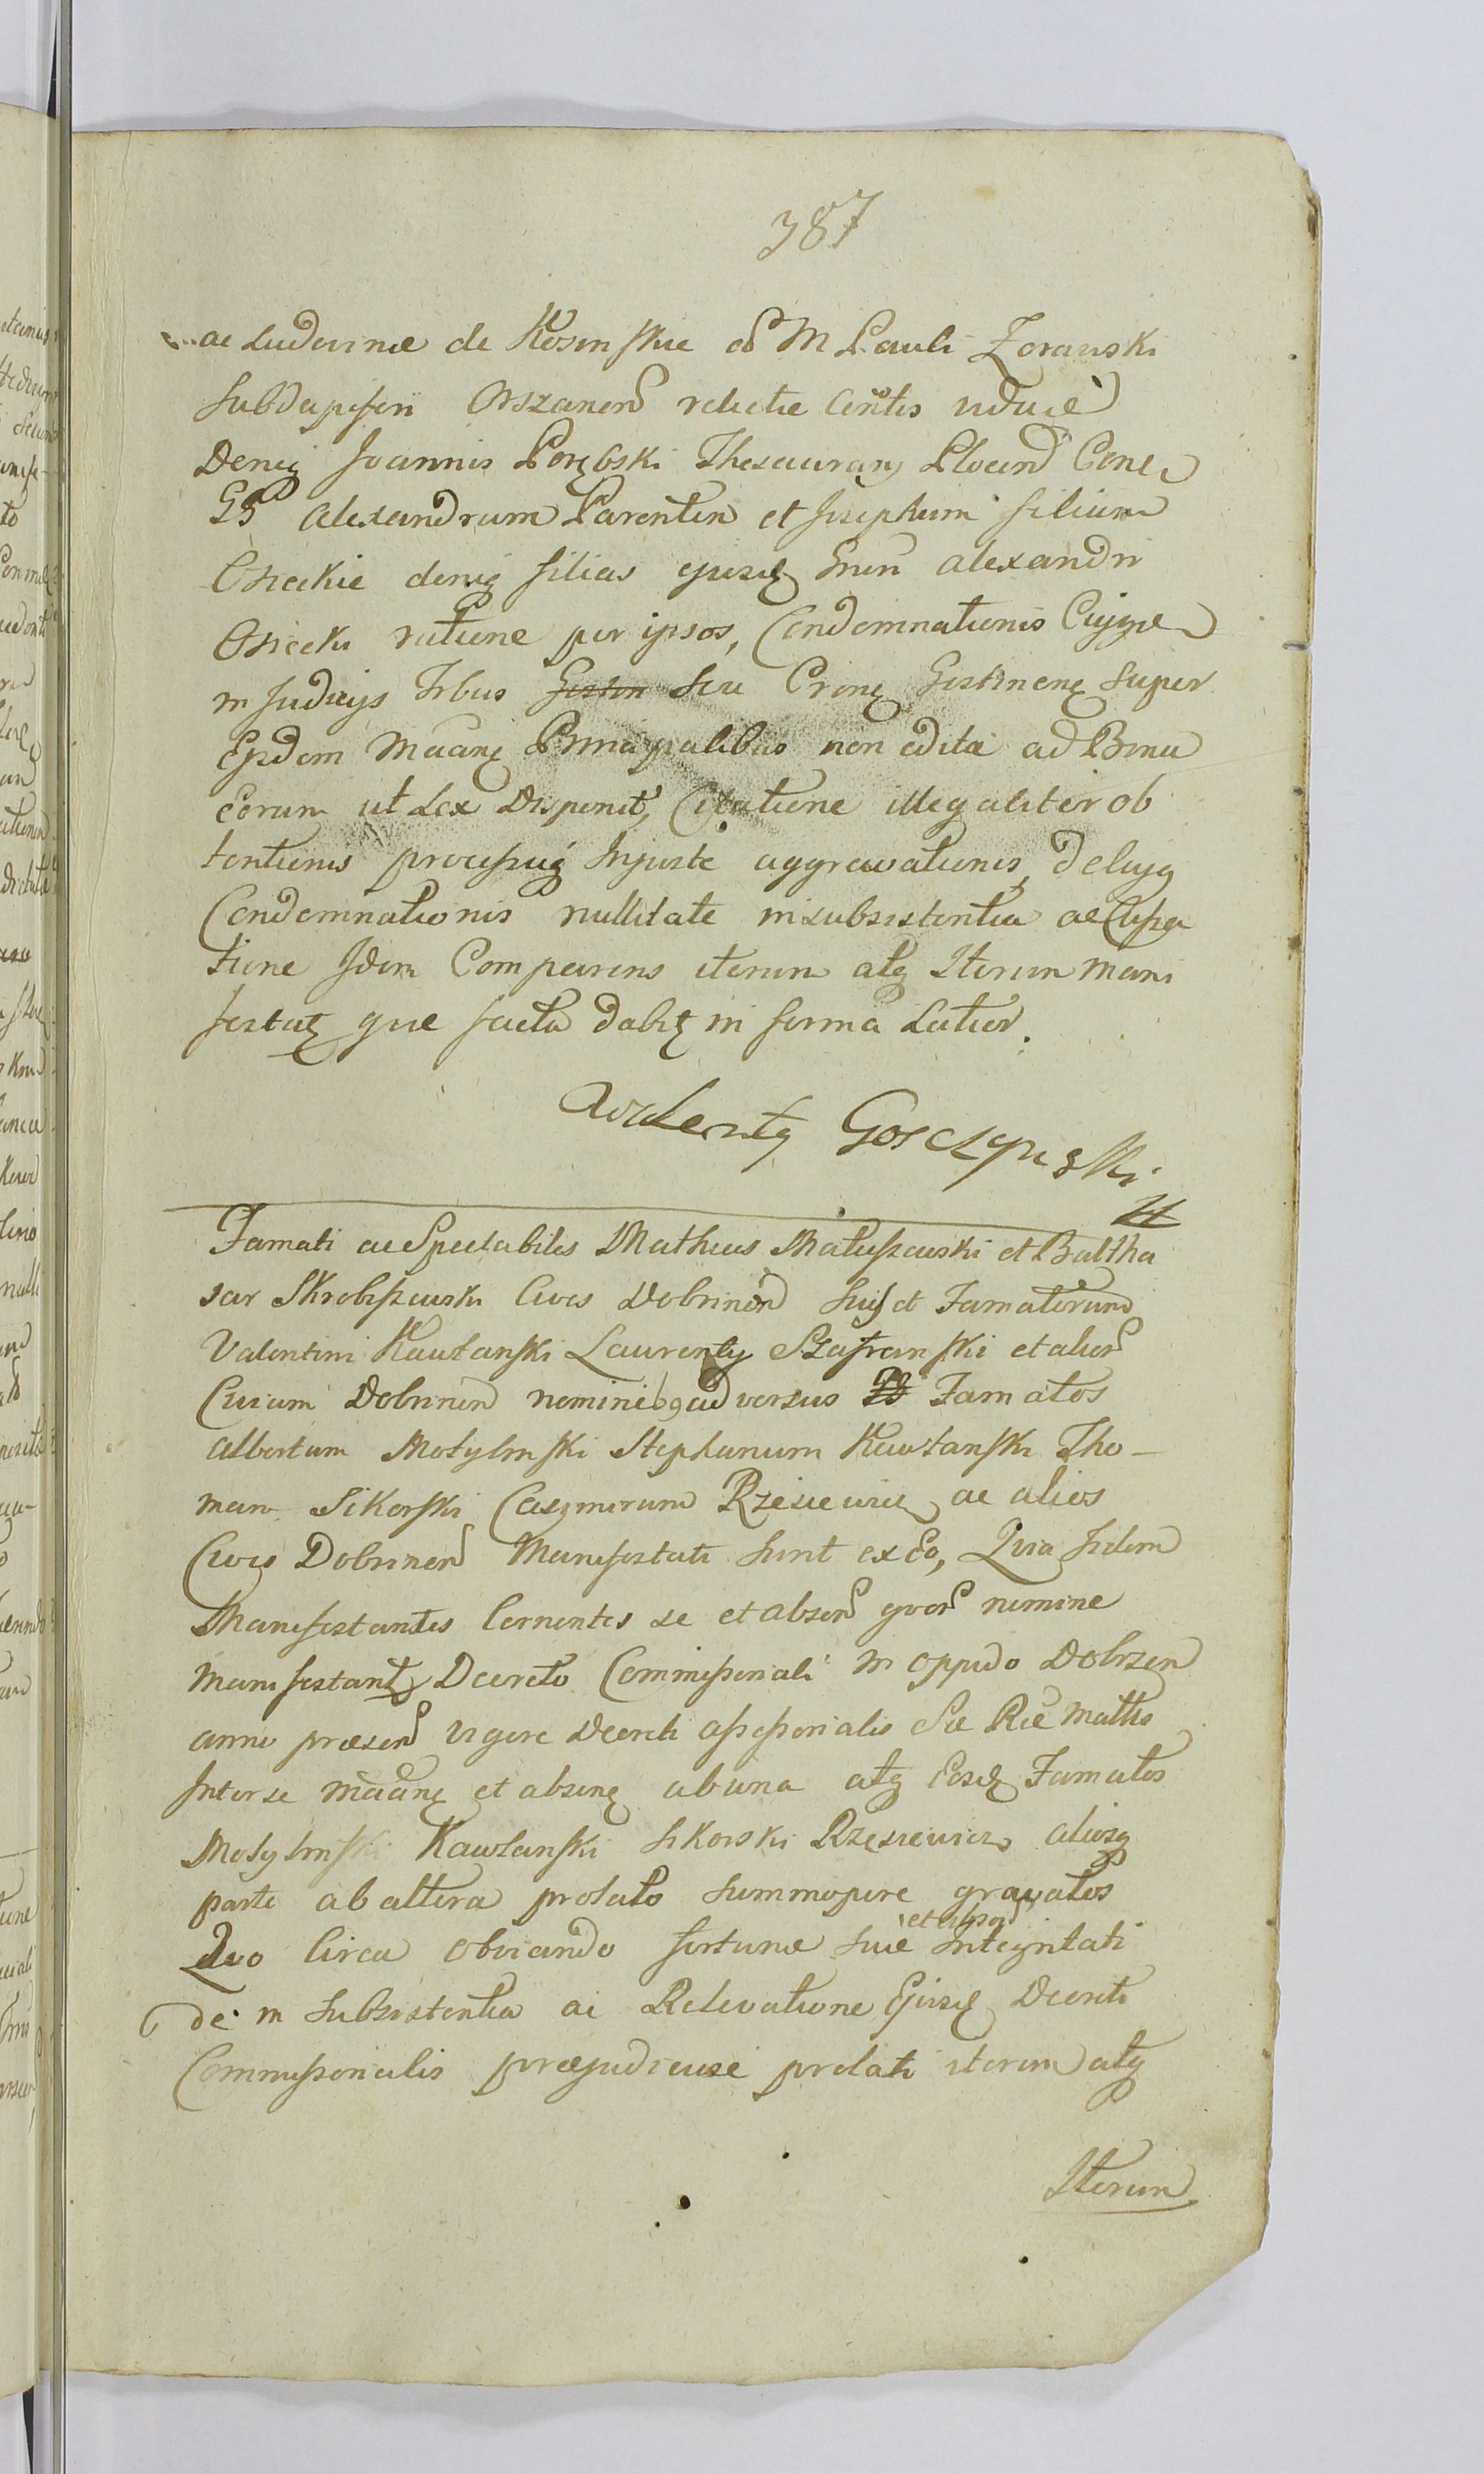 387
ac Ludovinæ de Kosinskie od M Pauli Zorawski
Subdapiferi Orszanen relictæ Consortis viduæ
Deniq Joannis Porębski Thesaurarij Plocen
GG Alexandrum Parentem et Josephum filium
Osieckie deniq filias ejusdq Alexandri
Osiecki ratione per ipsos, Condemnationis Cujque
in Judicijs seu super
Ejsdem Principalibus non edita ad Bona
Eorum ut Lex Disponit, Citatione illegaliter ob
tentionis processuq Injuste aggrawationis, deq
Condemnationis nullitate insubsistentia ac
tione Idem Comparens iterum atq Iterum mani
festatq que facta dabitq in forma Latior.
Walenty Gosczynski
Famati ac Spectabiles Matheus Matuszewski et Baltha
sar Skrobiszewski Cives Dobrinen suis et Famatorum
Valentini Kawłanski Laurenty Szafranski et alior
Civium Dobrinen nominibq adversus Famatos
Albertum Motylinski Stephanum Kawłanski Tho-
mam Sikorski Casimirum Rzesiewicz ac alios
Cives Dobrinen Manifestati sunt ex Eo, Quia Iidem
Manifestantes Cernentes se et absen quor nomine
manifestant Decreto Commissoriali in oppido Dobrzen
anno præsen vigore Decreti assessorialis Sæ Ræ Mattis
Inter se et absenq ab una atq Eosdq Famatos
Motylinski Kawłanski Sikorski Rzesiewicz aliosq
parte ab altera prolato summopere gravatos
Quo Circa obviando fortunæ suæ Integritati
de in Subsistentia ac Relevatione Ejusdq Decreti
Commissorialis præjudiciose prolati iterum atq
Iterum